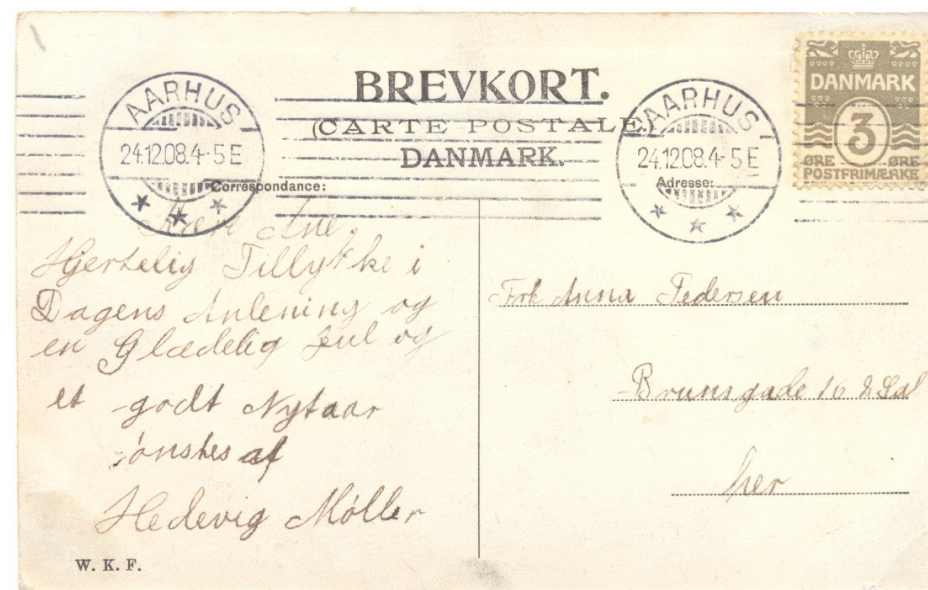 BREVKORT.
(CARTE POSTALE)
DANMARK.
AARHUS
24.12.08.4-5 E
AARHUS
24.12.08.4-5 E
DANMARK
3
ØRE ØRE
POSTFRIMÆRKE
Correspondance:
Kære Ane.
Hjertelig Tillykke i
Dagens Anlening og
en Glædelig Jul og
et godt Nytaar
ønskes af
Hedevig Møller
W. K. F.
Adresse:
Frk Anna Pedersen
Brunsgade 16 2 Sal
her